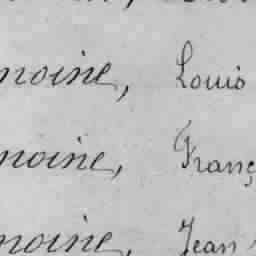 moine, Louis
moine, Franç
moine, Jean